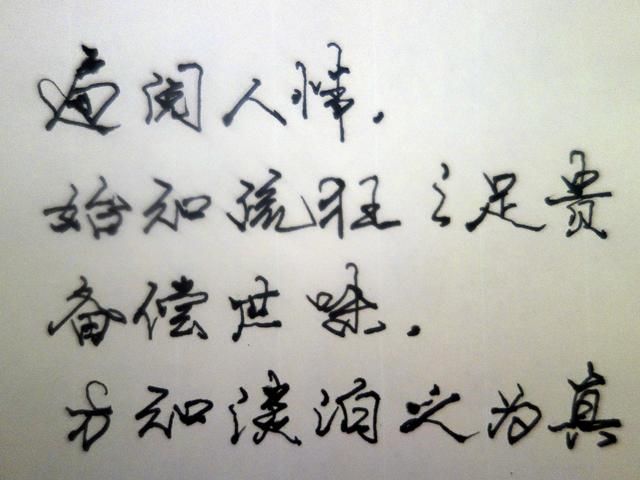 遍阅人情.
始知疏狂之足贵
备偿世味.
方知淡泊之为真